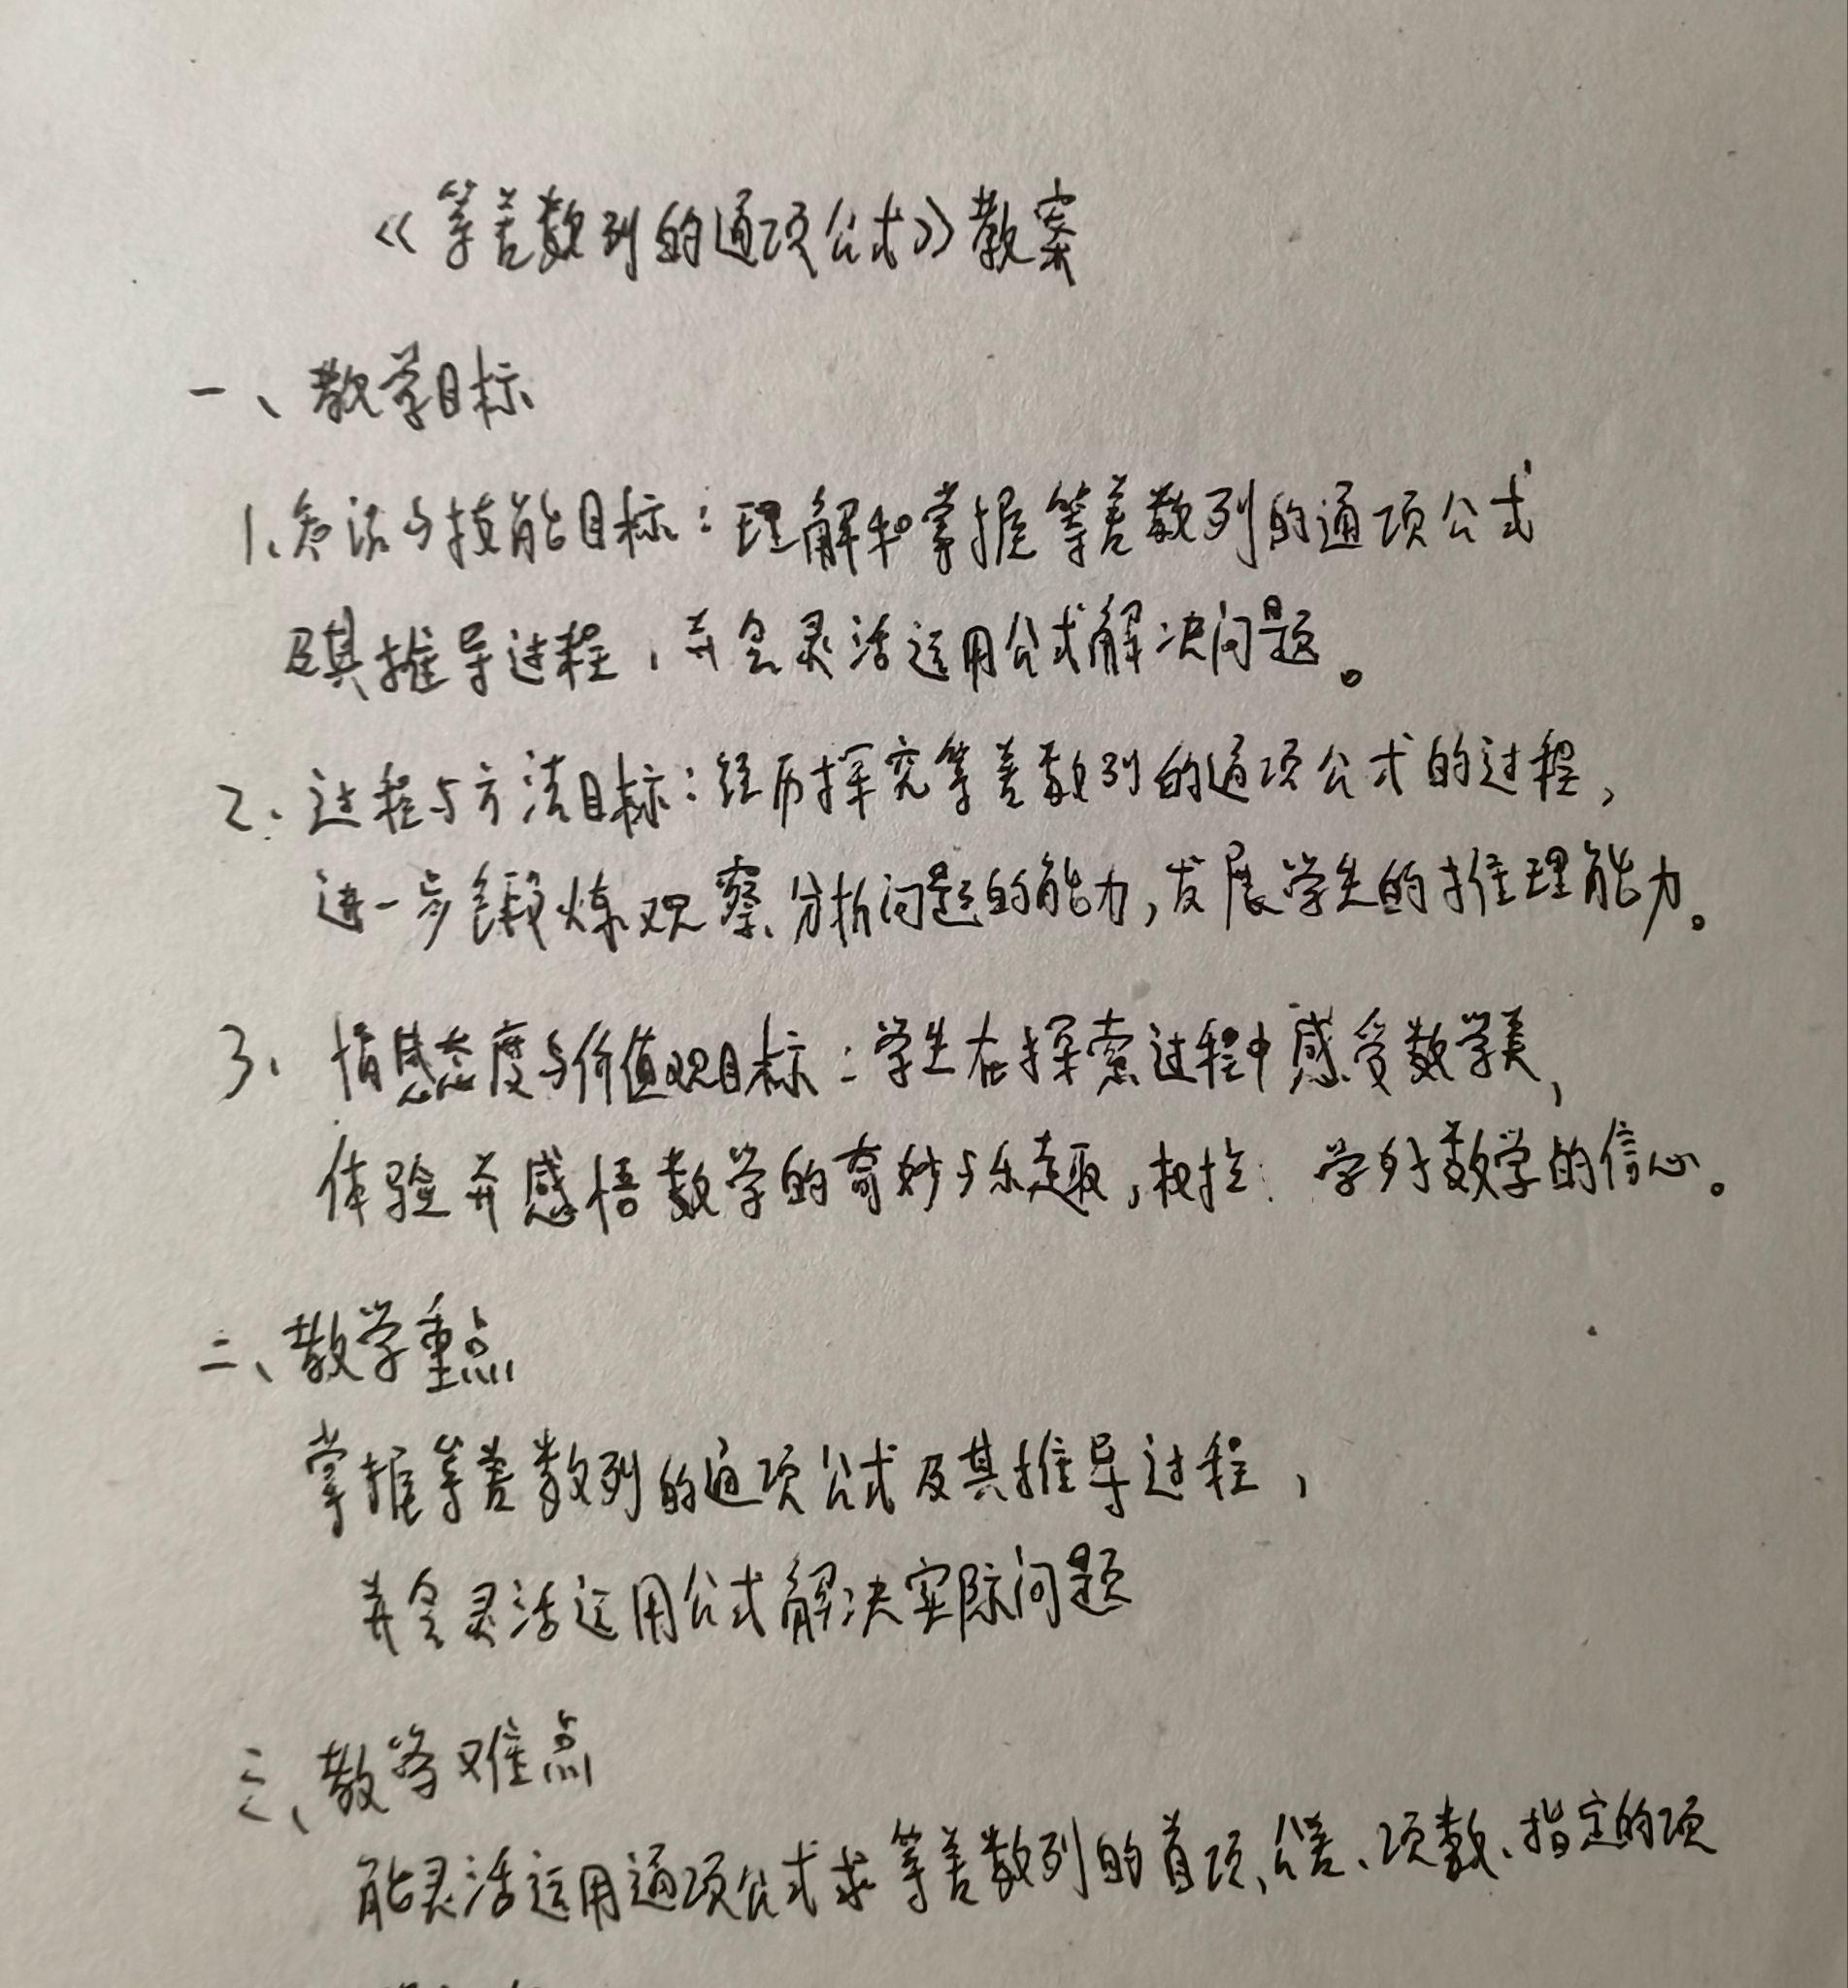 《等差数列的通项公式》教案
一、教学目标
1、知识与技能目标：理解和掌握等差数列的通项公式
及其推导过程，并会灵活运用公式解决问题。
2、过程与方法目标：经历探究等差数列的通项公式的过程，
进一步锻炼观察、分析问题的能力，发展学生的推理能力。
3、情感态度与价值观目标：学生在探索过程中感受数学美，
体验并感悟数学的奇妙与乐趣，树 学好数学的信心。
二、教学重点
掌握等差数列的通项公式及其推导过程，
并会灵活运用公式解决实际问题
三、教学难点
能灵活运用通项公式求等差数列的首项、公差、项数、指定的项